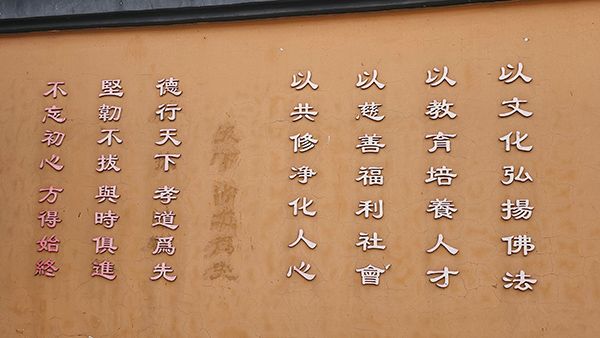 以文化弘揚佛法
以教育培養人才
以慈善福利社會
以共修淨化人心
德行天下 孝道爲先
堅韌不拔 與時俱進
不忘初心 方得始終